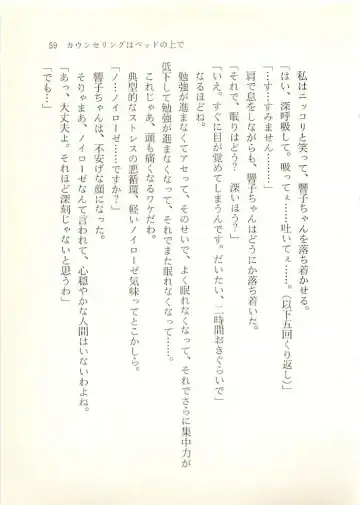 59　カウンセリングはベッドの上で
私はニッコリと笑って、響子ちゃんを落ち着かせる。
「はい、深呼吸して。吸ってぇ……吐いてぇ……。（以下五回くり返し）」
「…す…すみません………」
肩で息をしながらも、響子ちゃんはどうにか落ち着いた。
「それで、眠りはどう？　深いほう？」
「いえ。すぐに目が覚めてしまうんです。だいたい、二時間おきぐらいで」
なるほどね。
勉強が進まなくてアセって、そのせいで、よく眠れなくなって、それでさらに集中力が
低下して勉強が進まなくなって、それでまた眠れなくなって……。
これじゃあ、頭も痛くなるワケだわ。
典型的なストレスの悪循環、軽いノイローゼ気味ってとこかしら。
「ノ…ノイローゼ……ですか？」
響子ちゃんは、不安げな顔になった。
そりゃまあ、ノイローゼなんて言われて、心穏やかな人間はいないわよね。
「あっ、大丈夫よ。それほど深刻じゃないと思うわ」
「でも…」